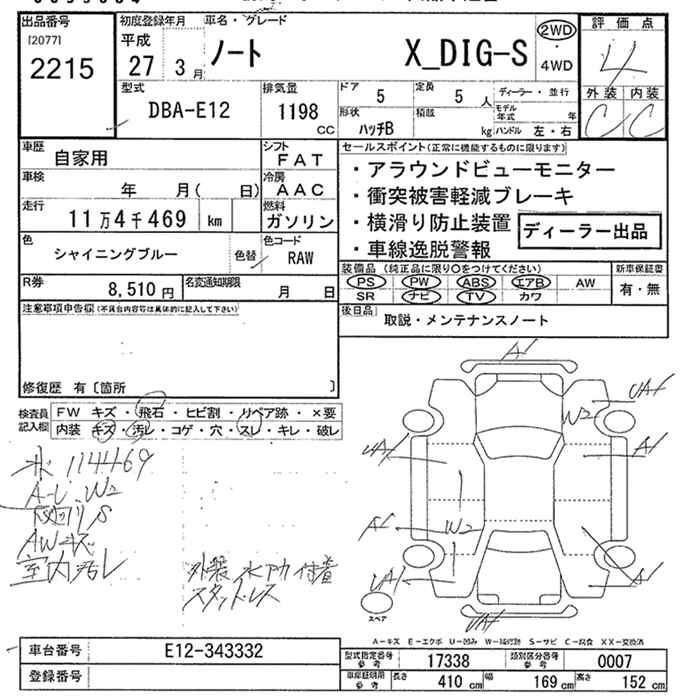 出品番号
[2077]
2215
初度登録年月
平成
27 3月
車名・グレード
ノート X_DIG-S
2WD
・
4WD
評価点
4
外装 内装
C C
型式
DBA-E12
排気量
1198
CC
ドア 5
定員 5 人
ディーラー・並行
形状 ハッチB
積載 kg
モデル年式 年
ハンドル 左・右
車歴
自家用
シフト
FAT
車検
年 月( 日)
冷房
AAC
走行
11万4千469 km
燃料
ガソリン
色
シャイニングブルー
色替
色コード
RAW
R券
8,510円
名変通知期限
月 日
セールスポイント(正常に機能するものに限ります)
・アラウンドビューモニター
・衝突被害軽減ブレーキ
・横滑り防止装置
・車線逸脱警報
ディーラー出品
装備品(純正品に限り○をつけてください)
PS PW ABS エアB AW
SR ナビ TV カワ
新車保証書
有・無
後日品
取説・メンテナンスノート
注意事項申告欄(不具合内容等は具体的に記入して下さい)
修復歴 有〔箇所 〕
検査員記入欄
FW キズ・飛石・ヒビ割・リペア跡・×要
内装 キズ・汚レ・コゲ・穴・スレ・キレ・破レ
114469
A-U.W2
AWキズ
室内汚レ
外装水アカ付着
スタッドレス
A1
UA1
W2
UA1
A1
A1
W2
UA1
A1
UA1
スペア
A-キズ E-エクボ U-凹み W-補修跡 S-サビ C-腐食 XX-交換済
車台番号
E12-343332
登録番号
型式指定番号参考 17338
類別区分番号参考 0007
車庫証明用参考 長さ 410 cm 幅 169 cm 高さ 152 cm